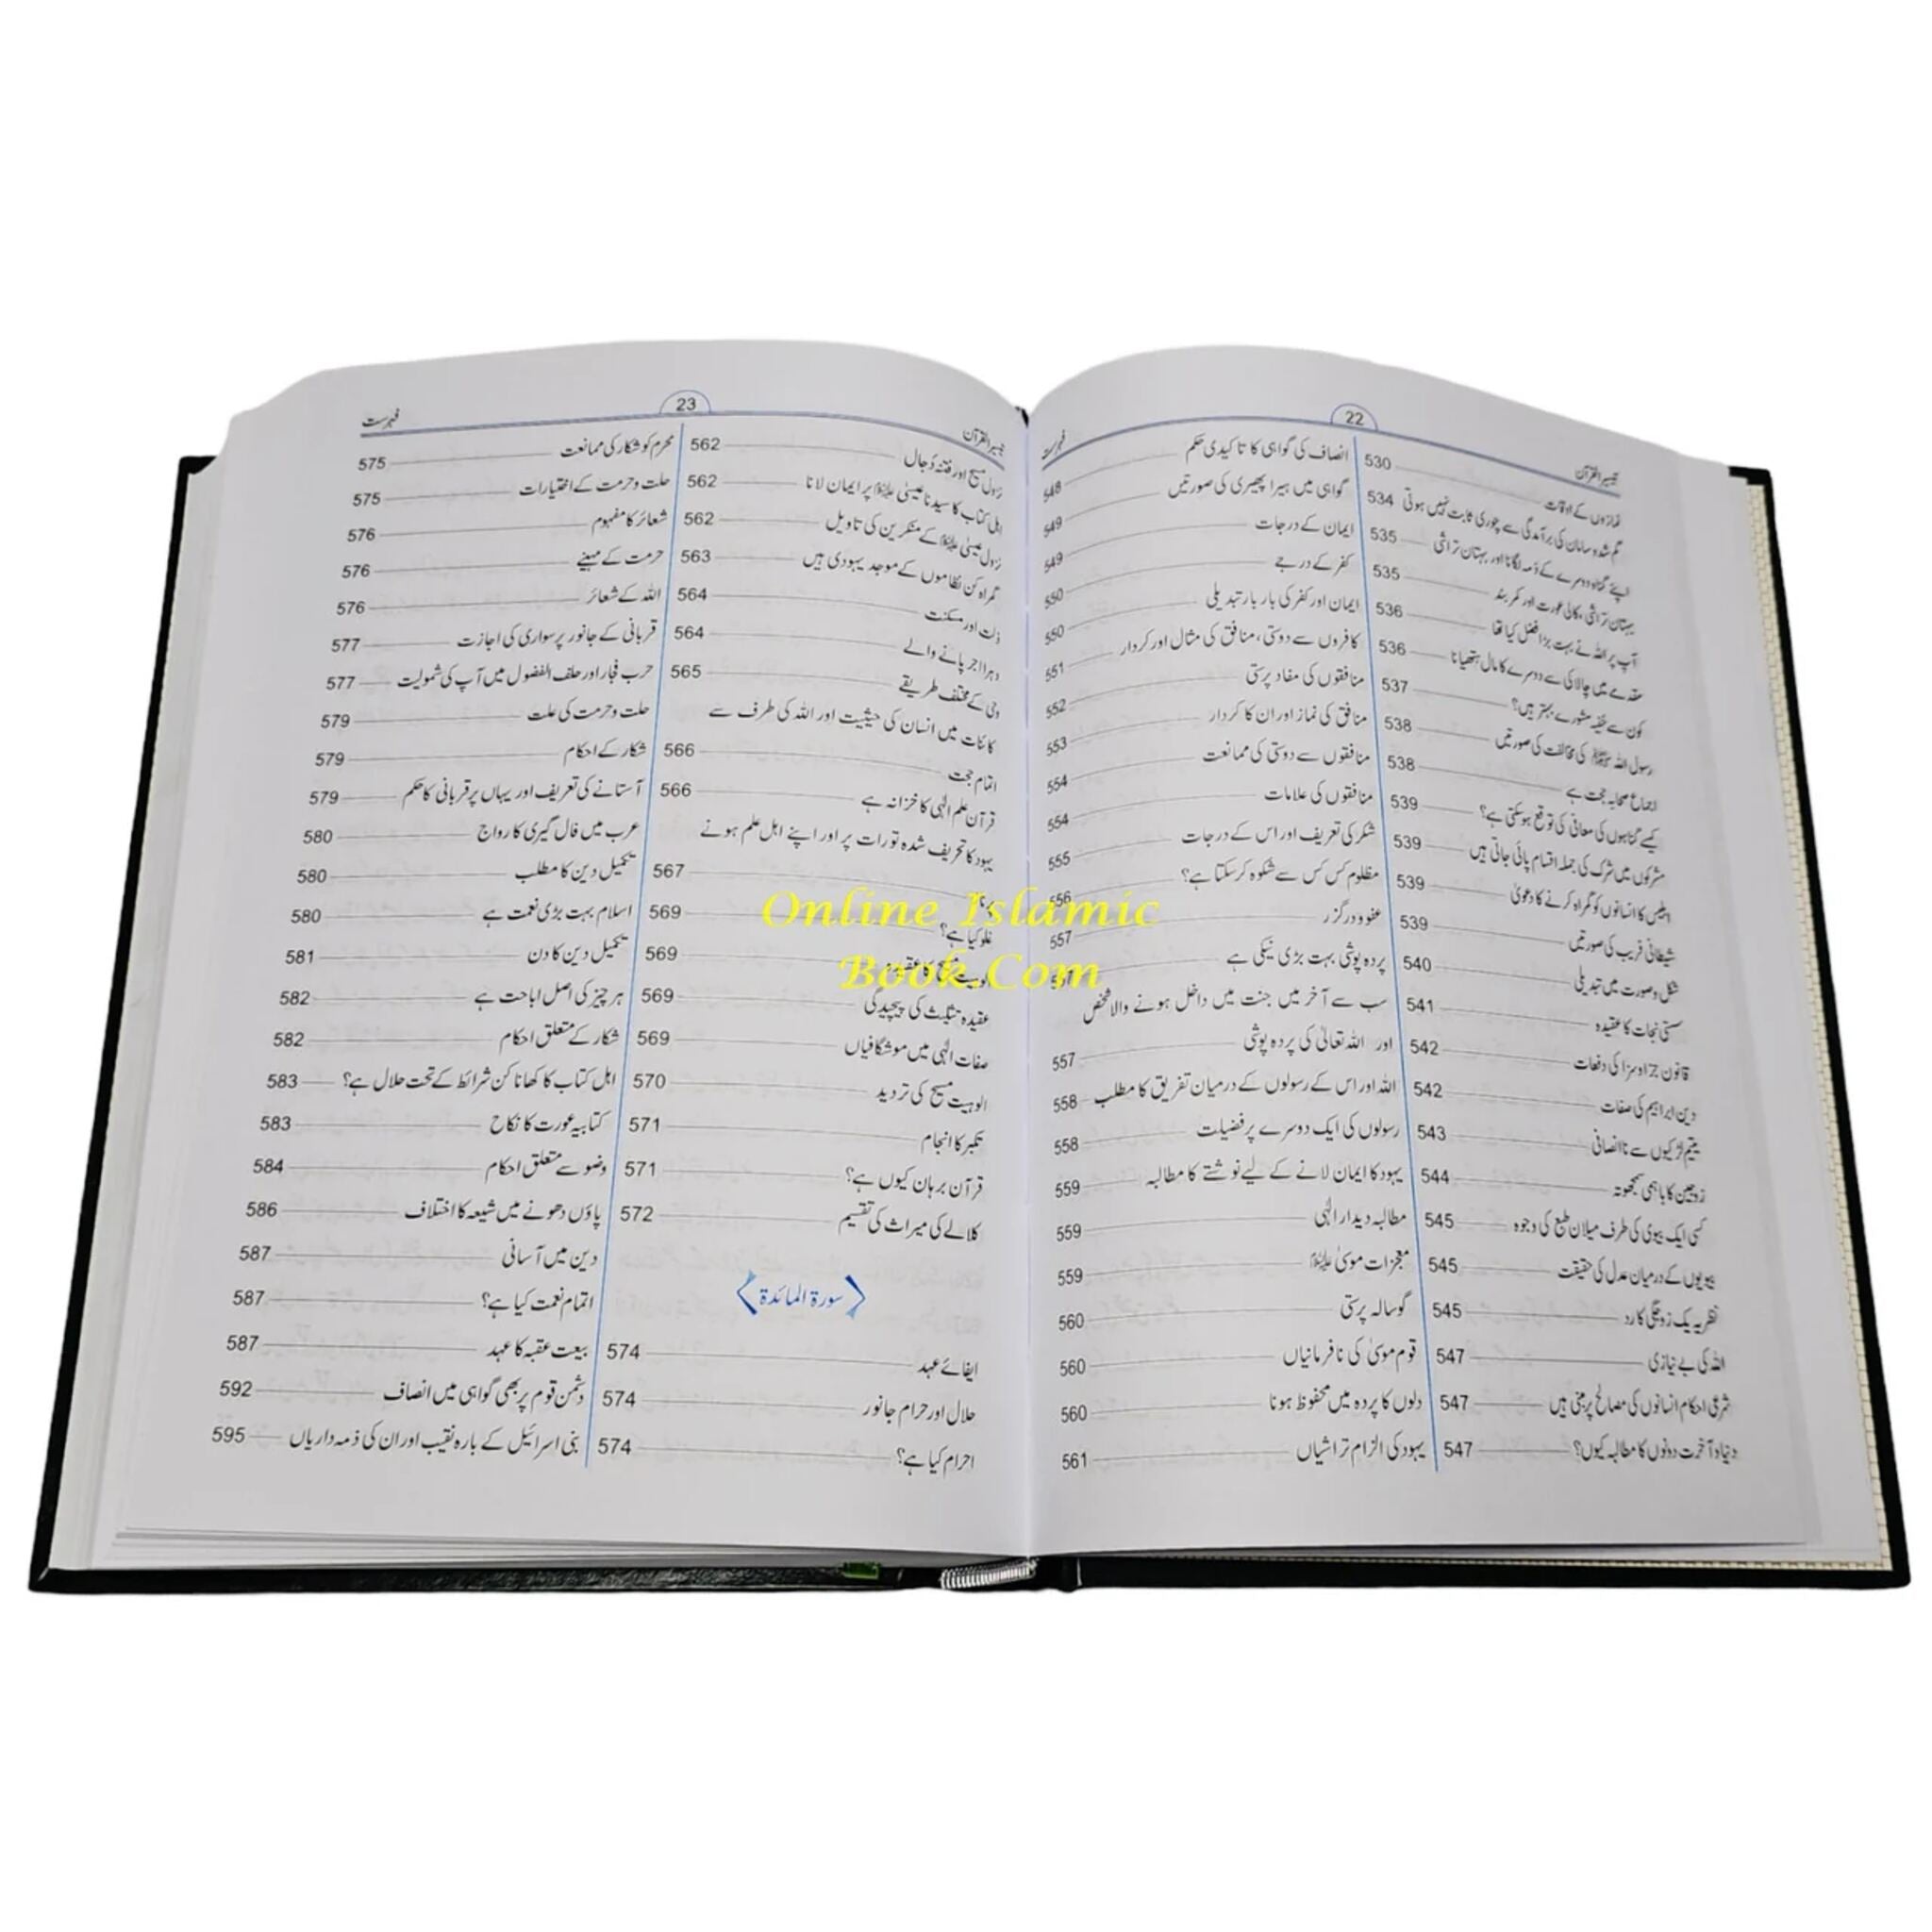 تیسیر القرآن
22
فہرست
نمازوں کے اوقات 530
گم شدہ سامان کی برآمدگی سے چوری ثابت نہیں ہوتی 534
اپنے گناہ دوسرے کے ذمہ لگانا اور بہتان تراشی 535
بہتان تراشی، کالی عورت اور کمر بند 535
آپ پر اللہ نے بہت بڑا فضل کیا تھا 536
مقدمے میں چالاکی سے دوسرے کا مال ہتھیانا 536
کون سے خفیہ مشورے بہتر ہیں؟ 537
رسول اللہ ﷺ کی مخالفت کی صورتیں 538
اجماع صحابہ حجت ہے 538
کیسے گناہوں کی معافی کی توقع ہوسکتی ہے؟ 539
مشرکوں میں شرک کی جملہ اقسام پائی جاتی ہیں 539
ابلیس کا انسانوں کو گمراہ کرنے کا دعویٰ 539
شیطانی فریب کی صورتیں 539
شکل و صورت میں تبدیلی 540
سستی نجات کا عقیدہ 541
قانون جزا و سزا کی دفعات 542
دین ابراہیم کی صفات 542
یتیم لڑکیوں سے ناانصافی 543
زوجین کا باہمی سمجھوتہ 544
کسی ایک بیوی کی طرف میلان طبع کی وجوہ 545
بیویوں کے درمیان عدل کی حقیقت 545
نظریہ یک زوجگی کا رد 545
اللہ کی بے نیازی 547
شرعی احکام انسانوں کی مصالح پر مبنی ہیں 547
دنیا و آخرت دونوں کا مطالبہ کیوں؟ 547
انصاف کی گواہی کا تاکیدی حکم 548
گواہی میں ہیرا پھیری کی صورتیں 549
ایمان کے درجات 549
کفر کے درجے 550
ایمان اور کفر کی بار بار تبدیلی 550
کافروں سے دوستی، منافق کی مثال اور کردار 551
منافقوں کی مفاد پرستی 552
منافق کی نماز اور ان کا کردار 553
منافقوں سے دوستی کی ممانعت 554
منافقوں کی علامات 554
شکر کی تعریف اور اس کے درجات 555
مظلوم کس کس سے شکوہ کر سکتا ہے؟ 556
عفو و درگزر 557
پردہ پوشی بہت بڑی نیکی ہے
سب سے آخر میں جنت میں داخل ہونے والا شخص
اور اللہ تعالیٰ کی پردہ پوشی 557
اللہ اور اس کے رسولوں کے درمیان تفریق کا مطلب 558
رسولوں کی ایک دوسرے پر فضیلت 558
یہود کا ایمان لانے کے لیے نوشتے کا مطالبہ 559
مطالبہ دیدار الٰہی 559
معجزات موسیٰ علیہ السلام 559
گوسالہ پرستی 560
قوم موسیٰ کی نافرمانیاں 560
دلوں کا پردہ میں محفوظ ہونا 560
یہود کی الزام تراشیاں 561
تیسیر القرآن
23
فہرست
نزول مسیح اور فتنہ دجال 562
اہل کتاب کا سیدنا عیسیٰ علیہ السلام پر ایمان لانا 562
نزول عیسیٰ علیہ السلام کے منکرین کی تاویل 562
گمراہ کن نظاموں کے موجد یہودی ہیں 563
ذلت اور مسکنت 564
دہرا اجر پانے والے 564
وحی کے مختلف طریقے 565
کائنات میں انسان کی حیثیت اور اللہ کی طرف سے
اتمام حجت 566
قرآن علم الٰہی کا خزانہ ہے 566
یہود کا تحریف شدہ تورات پر اور اپنے اہل علم ہونے
567
غلو کیا ہے؟ 569
569
عقیدہ تثلیث کی پیچیدگی 569
صفات الٰہی میں موشگافیاں 569
الوہیت مسیح کی تردید 570
تکبر کا انجام 571
قرآن برہان کیوں ہے؟ 571
کلالے کی میراث کی تقسیم 572
سورة المائدة
ایفائے عہد 574
حلال اور حرام جانور 574
احرام کیا ہے؟ 574
محرم کو شکار کی ممانعت 575
حلت و حرمت کے اختیارات 575
شعائر کا مفہوم 576
حرمت کے مہینے 576
اللہ کے شعائر 576
قربانی کے جانور پر سواری کی اجازت 577
حرب فجار اور حلف الفضول میں آپ کی شمولیت 577
حلت و حرمت کی علت 579
شکار کے احکام 579
آستانے کی تعریف اور یہاں پر قربانی کا حکم 579
عرب میں فال گیری کا رواج 580
تکمیل دین کا مطلب 580
اسلام بہت بڑی نعمت ہے 580
تکمیل دین کا دن 581
ہر چیز کی اصل اباحت ہے 582
شکار کے متعلق احکام 582
اہل کتاب کا کھانا کن شرائط کے تحت حلال ہے؟ 583
کتابیہ عورت کا نکاح 583
وضو سے متعلق احکام 584
پاؤں دھونے میں شیعہ کا اختلاف 586
دین میں آسانی 587
اتمام نعمت کیا ہے؟ 587
بیعت عقبہ کا عہد 587
دشمن قوم پر بھی گواہی میں انصاف 592
بنی اسرائیل کے بارہ نقیب اور ان کی ذمہ داریاں 595
Online Islamic
Book.Com